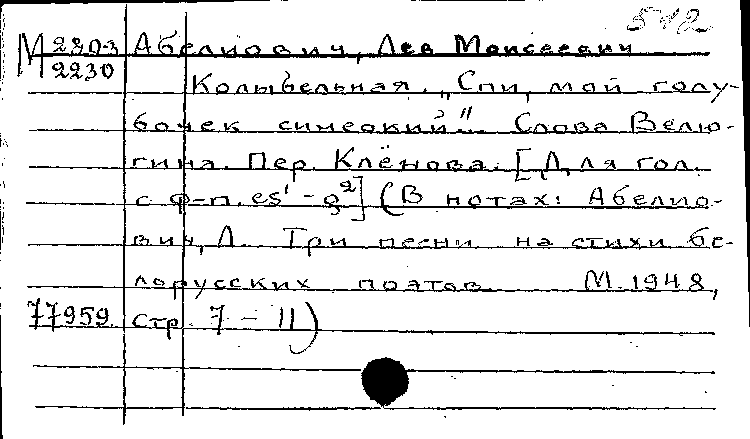 512
М 2803 Абелиович, Лев Моисеевич
2230
Колыбельная. „Спи, мой голу-
бочек синеокий". Слова Велю-
гина. Пер. Клёнова. [Для гол.
с ф-п. es' - g²] (В нотах: Абелио-
вич, Л. Три песни на стихи бе-
лорусских поэтов. М. 1948,
77959. стр. 7 - 11)